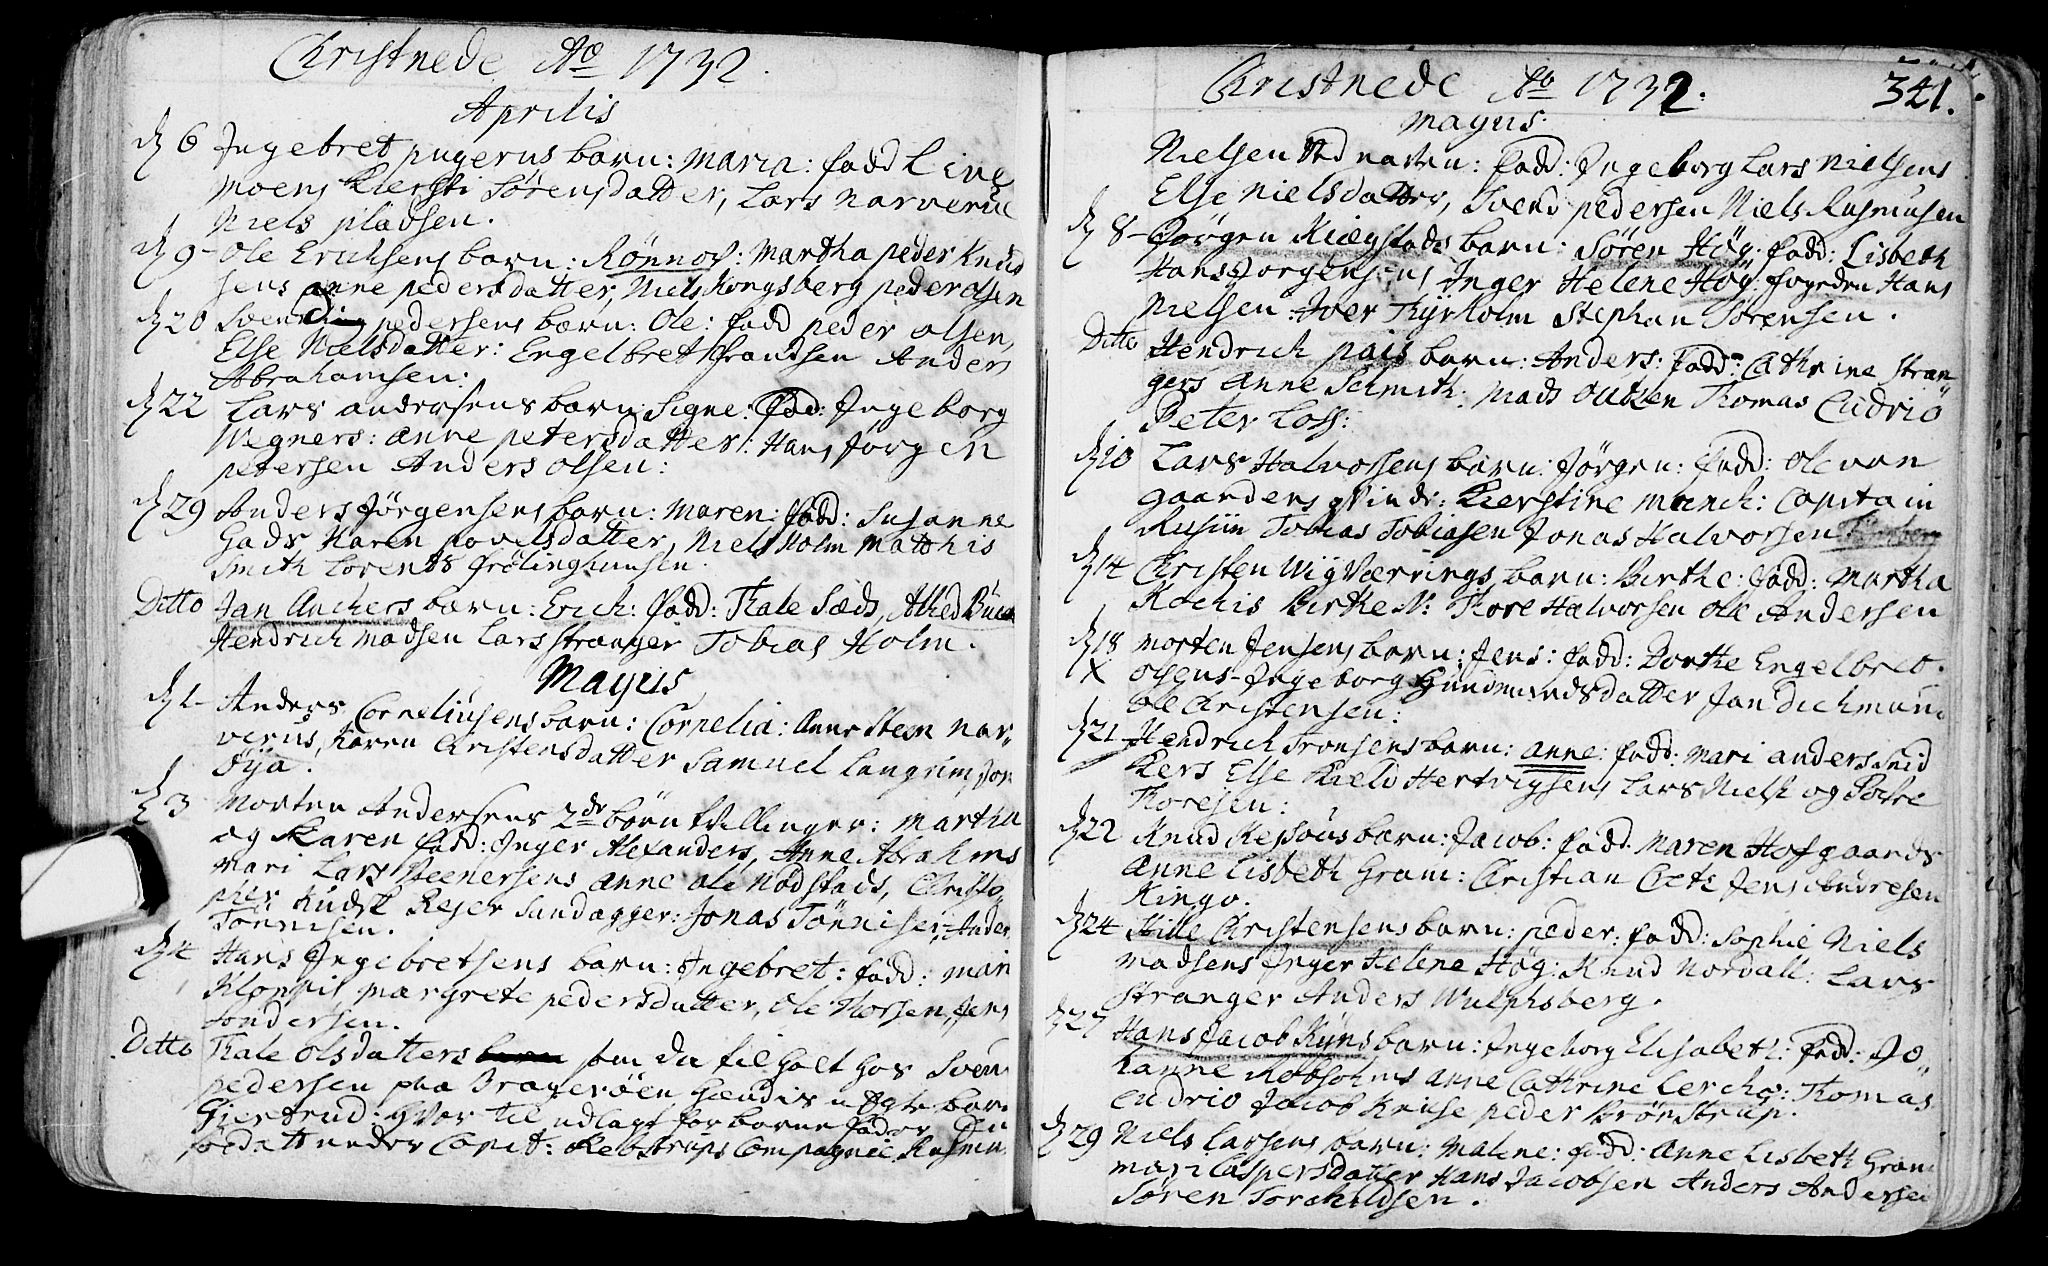 Christnede Ao 1732.
Aprilis
D 6 Ingebret pugerus barn: Maria: fadd Line
Moens Kiersti Sørensdatter, Lars Narverud
Niels pladsen.
D 9 - Ole Erichsens barn: Rønnog: Martha peder Knud
sens anne pedersdatter, Niels Kongsberg peder olsen
D 20 Svend pedersens barn: Ole: fadd peder olsen,
Else Nielsdatter: Engelbret frandsen Anders
Abrahamsen:
D 22 Lars andersens barn Signe: fadd: Ingeborg
Wegners: anne petersdatter: Hans Jørgen
petersen Anders olsen:
D 29 Anders Jørgensens barn: Maren: fadd: Susanne
Gads Karen povelsdatter, Niels Holm Matthis
Smith Lorents frølinghuusen.
Ditto Jan Anchers barn: Erich: fadd: Thale Sæds, Alhed
Hendrich Madsen Lars Stranger Tobias Holm.
Mayus
D 1 - Anders Corneliusens barn: Cornelia: Anne Steen Nar-
verus, Karen Christensdatter Samuel Langrim, Jon
Øya.
D 3 Morten Andersens 2de børn tvillinger: Martha
og Karen fadd: Inger Alexanders, Anne Abrahms
Mari Lars Steenersens anne ole Nødstads, Christo-
pher Kudsk Rejer Sandagger: Jonas Tønnisen, Ander
Tønnisen.
D 4 Hans Ingebretsens barn: Ingebret: fadd: Mari
Klompis, Margrete pedersdatter, ole Thossen, Jens
Andersen.
Ditto Thale olsdatters som da til holt hos Sven
pedersen paa Bragerøen hendis u Ægte barn
Giertrud: hvor til udlagt for barne fader en
under Capit: Rebstrups Compagnie Rasmu

Christnede Ao 1732. 341.
Mayus.
Nielsen Ved navn: fadd: Ingeborg Lars Nielsens
Else Nielsdatter, Svend pedersen Niels Rasmusen
D 8 - Jørgen Kiegstads barn: Søren Høg: fadd: Lisbeth
Hans Jørgensens, Inger Helene Høg: fogeden Hans
Nielsen: Iver Thyrholm Stephan Sørensen.
Ditto Hendrich pais barn: Anders: fadd: Cathrine Stran-
gers Anne Schmith: Mads outzen Thomas Cudrio
Peter Loss:
D 10 Lars Halvossens barn: Jørgen: fadd: ole van
gaardens qvinde: Kierstine Munch: Capitain
Rusiin Tobias Tobiasen Jonas Halvorsen
D 14 Christen Wig Værrings barn: Birthe: fadd: Martha
Kochis Birthe N: Thore Halvorsen ole Andersen
D 18 Morten Jensens barn: Jens: fadd: Dorthe Engelbret
X - Ingeborg Gundmundsdatter Jan Dichman
ole Christensen:
D 21 Hendrich Tronsens barn: anne: fadd: Mari anders Snid
kers Else Kield Hertvigsens Lars Niels: og
Thoresen:
D 22 Knud Kessøus barn: Jacob: fadd: Maren Hofgaards
Anne Lisbeth Gram: Christian Jens Andresen
Kingo.
D 24 Hille Christensens barn: peder: fadd: Sophie Niels
Madsens Inger Helene Høg: Knud Nordall: Lars
Stranger Anders Wulphsberg.
D 27 Hans Jacob Kyns barn: Ingeborg Elisabeth: fadd: Jo-
hanne Robsohms anne Cathrine Lerche: Thomas
Cudrio Jacob Kruse peder Brønstrup.
D 29 Niels Larsens barn: Malene: fadd: Anne Lisbeth Gram
Mari Caspersdatter Hans Jacobsen Anders Andersen
Søren Torchildsen.